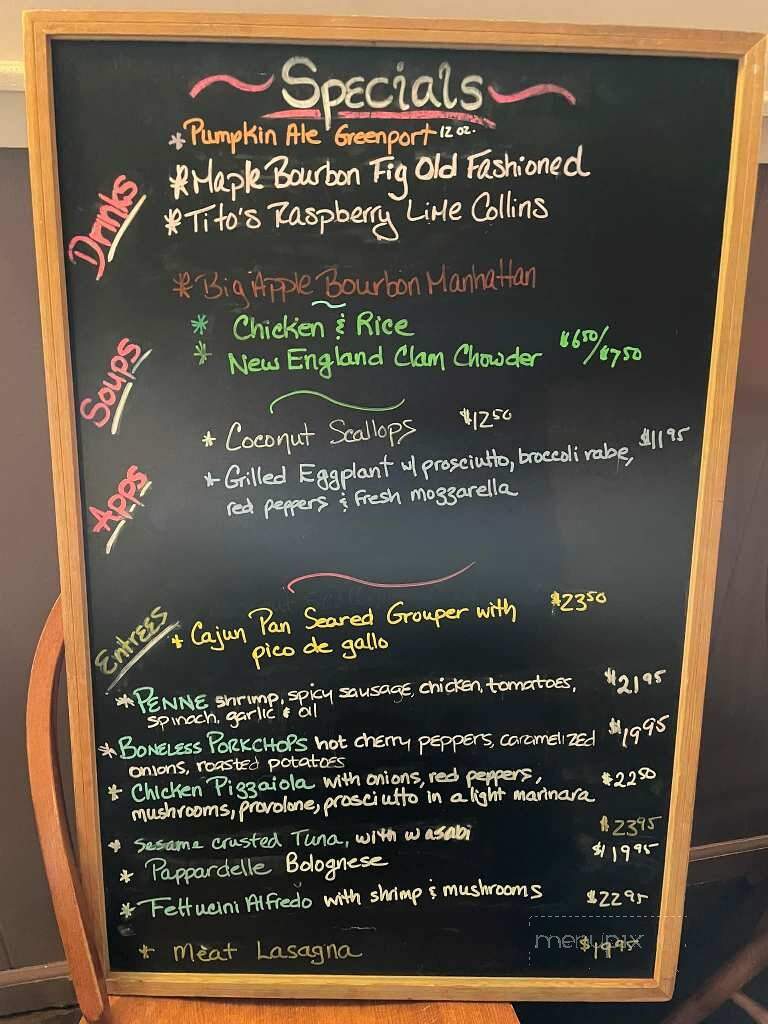 Specials
Drinks
* Pumpkin Ale Greenport 12 oz.
* Maple Bourbon Fig Old Fashioned
* Tito's Raspberry Lime Collins
* Big Apple Bourbon Manhattan
Soups
* Chicken & Rice
* New England Clam Chowder $650/$750
Apps
* Coconut Scallops $1250
* Grilled Eggplant w/ prosciutto, broccoli rabe, $1195
red peppers & fresh mozzarella
Entrees
* Cajun Pan Seared Grouper with $2350
pico de gallo
* PENNE shrimp, spicy sausage, chicken, tomatoes, $2195
spinach, garlic & oil
* BONELESS PORKCHOPS hot cherry peppers, caramelized $1995
onions, roasted potatoes
* Chicken Pizzaiola with onions, red peppers, $2250
mushrooms, provolone, prosciutto in a light marinara
* Sesame crusted Tuna, with wasabi $2395
* Pappardelle Bolognese $1995
* Fettucini Alfredo with shrimp & mushrooms $2295
* Meat Lasagna $1995
menupix